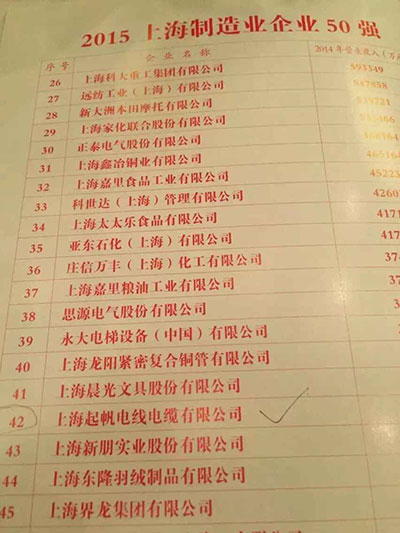 2015 上海制造业企业 50 强
序号 企业名称 2014年营业收入（万
26 上海科大重工集团有限公司 593349
27 远纺工业（上海）有限公司
28 新大洲本田摩托有限公司
29 上海家化联合股份有限公司
30 正泰电气股份有限公司
31 上海鑫冶铜业有限公司
32 上海嘉里食品工业有限公司 45223
33 科世达（上海）管理有限公司 4260
34 上海太太乐食品有限公司 4171
35 亚东石化（上海）有限公司 417
36 庄信万丰（上海）化工有限公司 37
37 上海嘉里粮油工业有限公司
38 思源电气股份有限公司
39 永大电梯设备（中国）有限公司
40 上海龙阳紧密复合铜管有限公司
41 上海晨光文具股份有限公司
42 上海起帆电线电缆有限公司
43 上海新朋实业股份有限公司
44 上海东隆羽绒制品有限公司
45 上海界龙集团有限公司